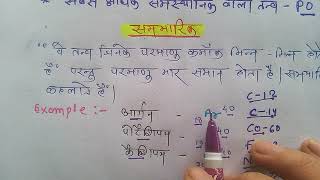 * सबसे अधिक समस्थानिक वाला तत्व - PO
समभारिक
"वे तत्व जिनके परमाणु क्रमांक भिन्न - भिन्न होते
हैं परन्तु परमाणु भार समान होता है। समभारि
कहलाते हैं।
Example :-
आर्गन - 18 Ar 40
पोटैशियम - 40
कैल्शियम -
C-12
C-14
CO-60